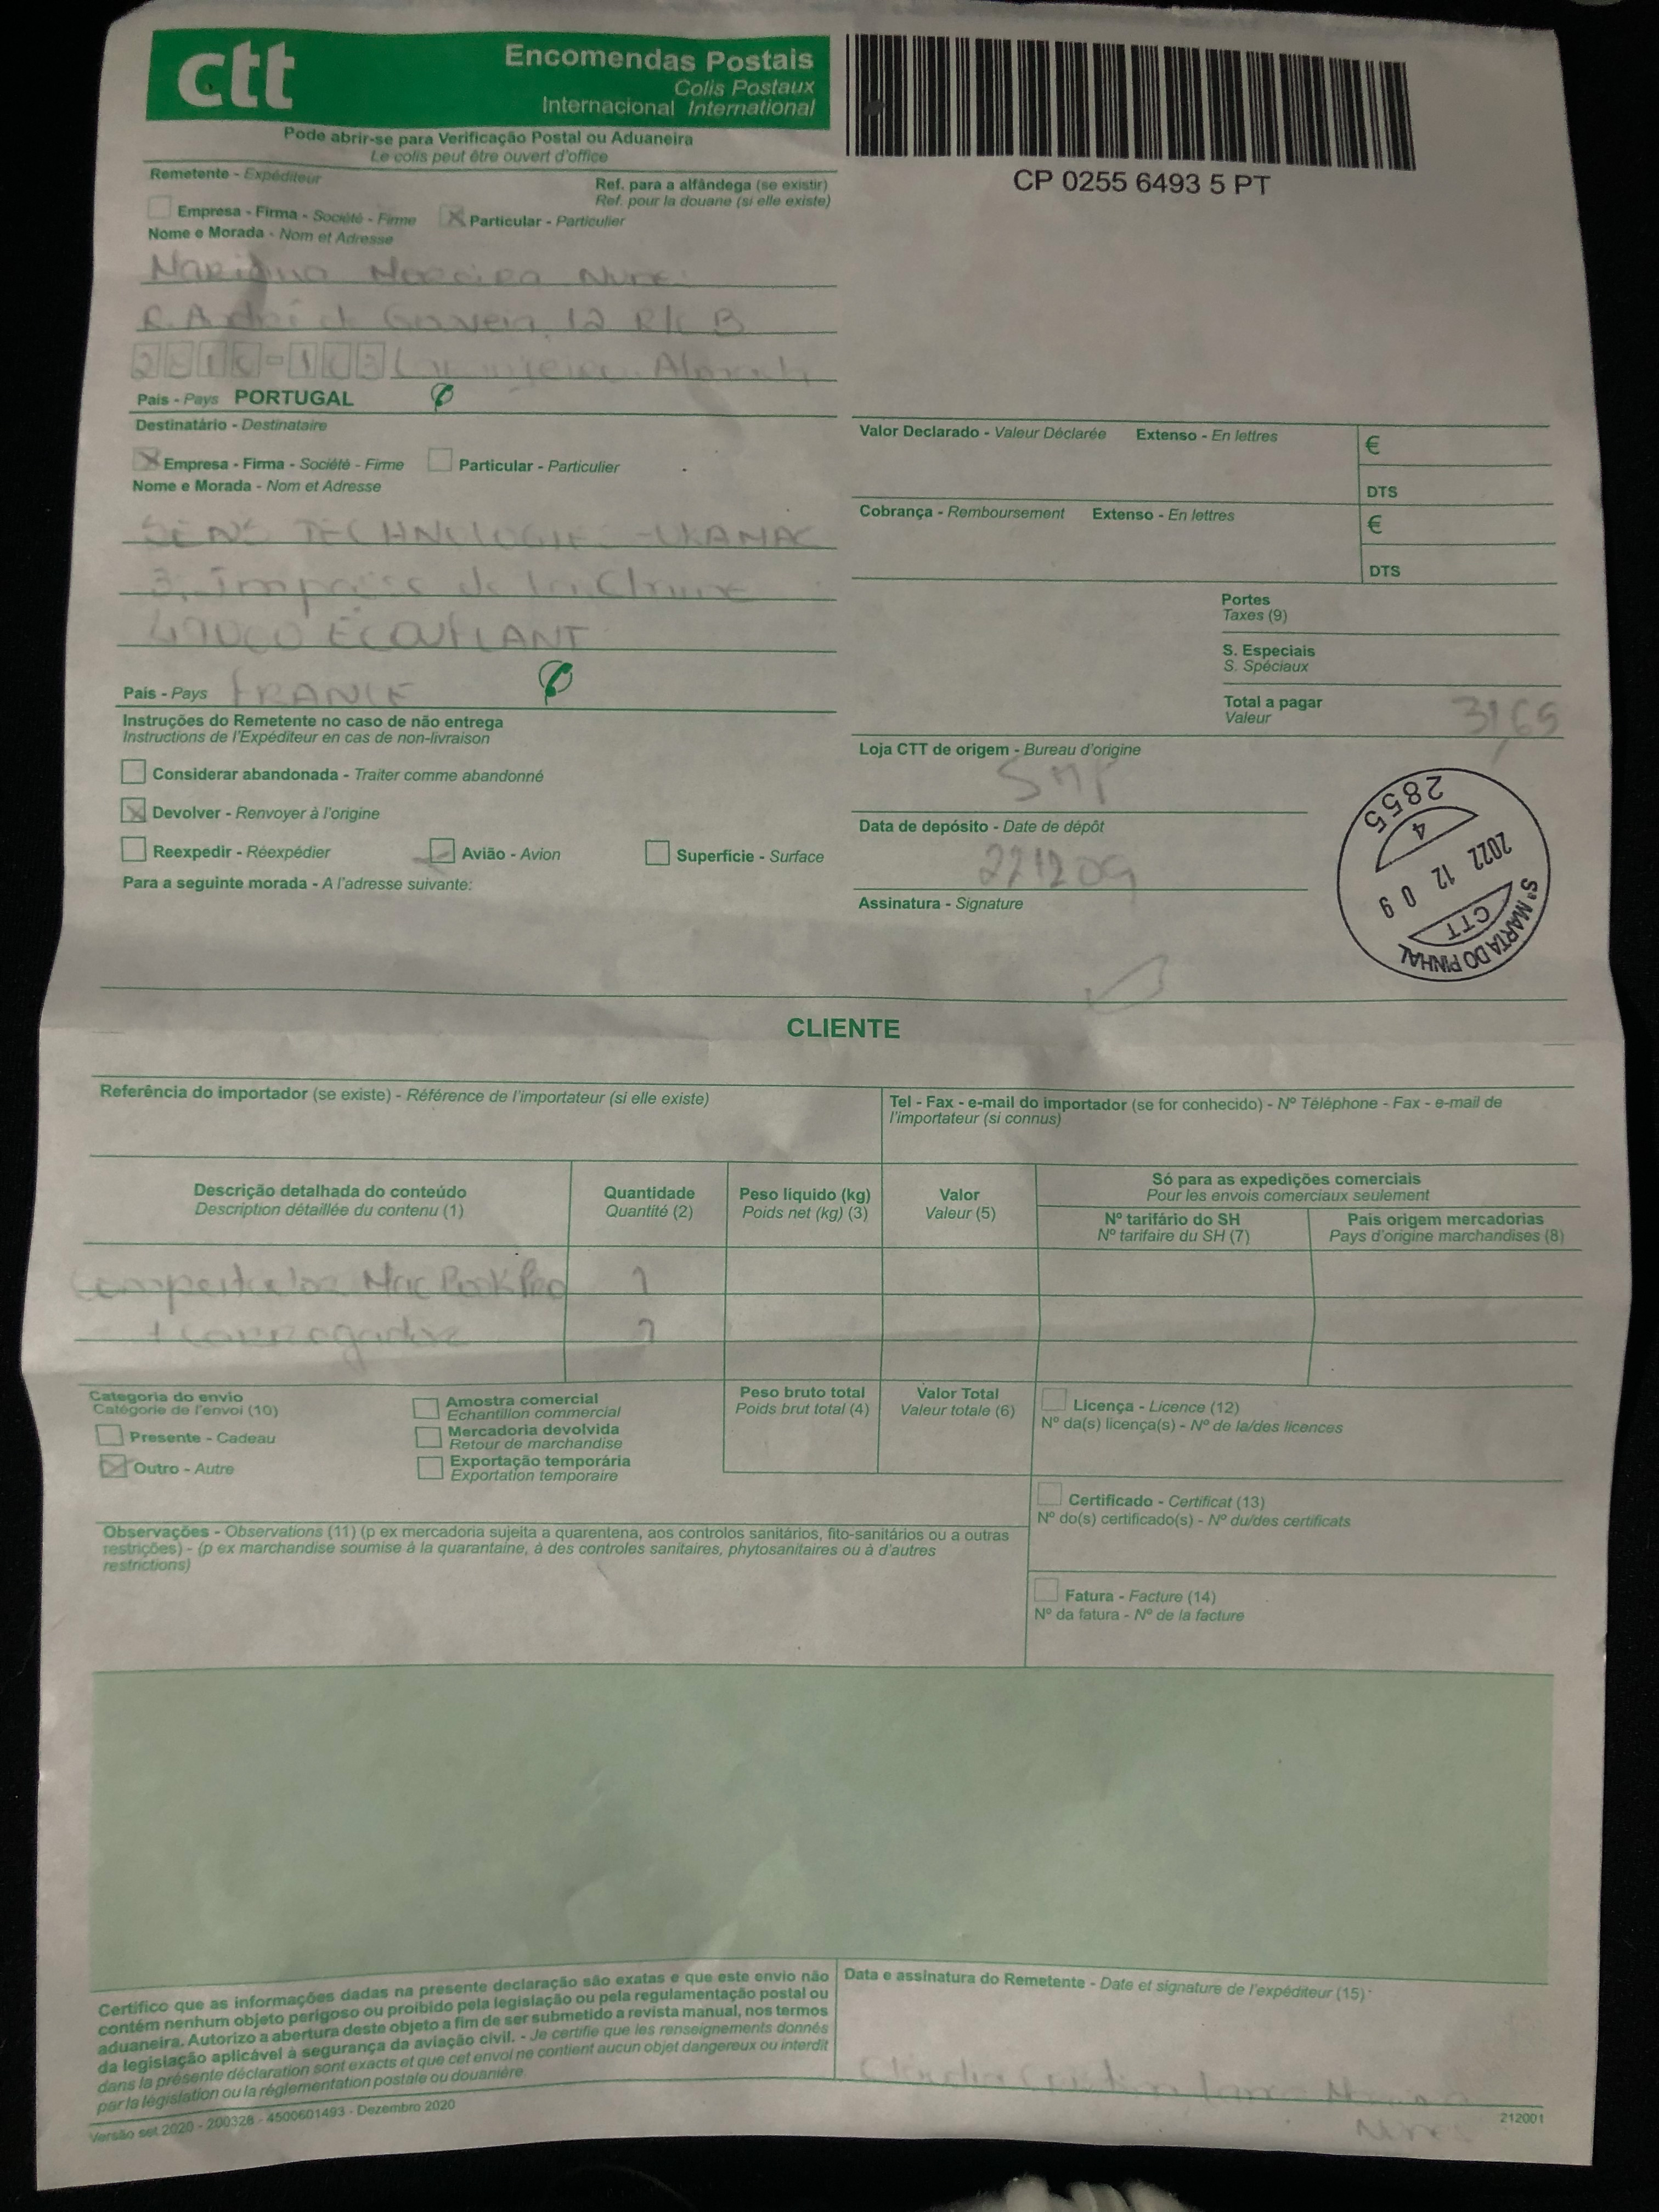 ctt
Encomendas Postais
Colis Postaux
Internacional International
Pode abrir-se para Verificação Postal ou Aduaneira
Le colis peut être ouvert d'office
CP 0255 6493 5 PT
Remetente - Expéditeur
Ref. para a alfândega (se existir)
Ref. pour la douane (si elle existe)
Empresa - Firma - Société - Firme
Particular - Particulier
Nome e Morada - Nom et Adresse
Moreira
R. André de Gouveia 12 R/C B
País - Pays PORTUGAL
Destinatário - Destinataire
Empresa - Firma - Sociétè - Firme
Particular - Particulier
Nome e Morada - Nom et Adresse
TECHNOLOGIE
3, Impasse de la
49000 ECOUFLANT
País - Pays FRANCE
Instruções do Remetente no caso de não entrega
Instructions de l'Expéditeur en cas de non-livraison
Considerar abandonada - Traiter comme abandonné
Devolver - Renvoyer à l'origine
Reexpedir - Réexpédier
Avião - Avion
Superfície - Surface
Para a seguinte morada - A l'adresse suivante:
Valor Declarado - Valeur Déclarée Extenso - En lettres
€
DTS
Cobrança - Remboursement Extenso - En lettres
€
DTS
Portes
Taxes (9)
S. Especiais
S. Spéciaux
Total a pagar
Valeur
31,65
Loja CTT de origem - Bureau d'origine
SMP
Data de depósito - Date de dépôt
221209
Assinatura - Signature
2855
4
2022 12 09
CTT
Sª MARTA DO PINHAL
CLIENTE
Referência do importador (se existe) - Référence de l'importateur (si elle existe)
Tel - Fax - e-mail do importador (se for conhecido) - Nº Téléphone - Fax - e-mail de
l'importateur (si connus)
Descrição detalhada do conteúdo
Description détaillée du contenu (1)
Quantidade
Quantité (2)
Peso líquido (kg)
Poids net (kg) (3)
Valor
Valeur (5)
Só para as expedições comerciais
Pour les envois comerciaux seulement
Nº tarifário do SH
Nº tarifaire du SH (7)
País origem mercadorias
Pays d'origine marchandises (8)
MacBook Pro 1
+ carregador 1
Categoria do envio
Catégorie de l'envoi (10)
Presente - Cadeau
Outro - Autre
Amostra comercial
Echantillon commercial
Mercadoria devolvida
Retour de marchandise
Exportação temporária
Exportation temporaire
Peso bruto total
Poids brut total (4)
Valor Total
Valeur totale (6)
Licença - Licence (12)
Nº da(s) licença(s) - Nº de la/des licences
Certificado - Certificat (13)
Nº do(s) certificado(s) - Nº du/des certificats
Observações - Observations (11) (p ex mercadoria sujeita a quarentena, aos controlos sanitários, fito-sanitários ou a outras
restrições) - (p ex marchandise soumise à la quarantaine, à des controles sanitaires, phytosanitaires ou à d'autres
restrictions)
Fatura - Facture (14)
Nº da fatura - Nº de la facture
Certifico que as informações dadas na presente declaração são exatas e que este envio não
contém nenhum objeto perigoso ou proibido pela legislação ou pela regulamentação postal ou
aduaneira. Autorizo a abertura deste objeto a fim de ser submetido a revista manual, nos termos
da legislação aplicável à segurança da aviação civil. - Je certifie que les renseignements donnés
dans la présente déclaration sont exacts et que cet envoi ne contient aucun objet dangereux ou interdit
par la législation ou la réglementation postale ou douanière.
Data e assinatura do Remetente - Date et signature de l'expéditeur (15)
Nunes
Versão set 2020 - 200328 - 4500601493 - Dezembro 2020
212001